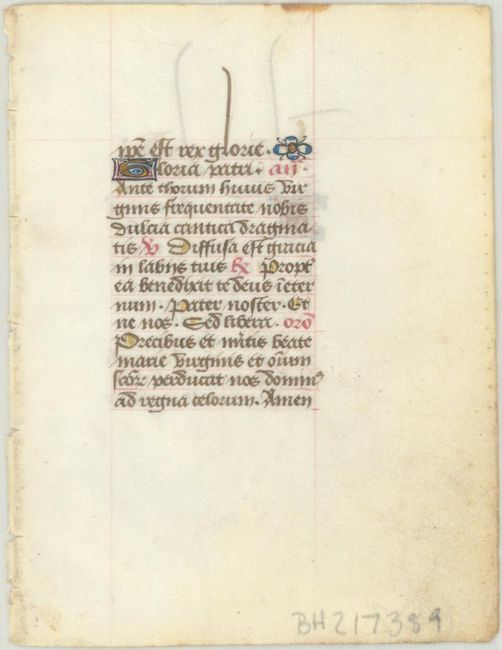 ip̄e est rex glorie.
Gloria patri. añ.
Ante thorum huius vir
ginis frequentate nobis
dulcia cantica dragma
tis ℣ Diffusa est gracia
in labijs tuis ℟ Propt̄
ea benedixit te deus īeter
num. Pater noster. Et
ne nos. Sed libera. orō
Precibus et mītis beate
marie virginis et oīum
scōrz perducat nos dominꝰ
ad regna celorum. Amen
BH217389